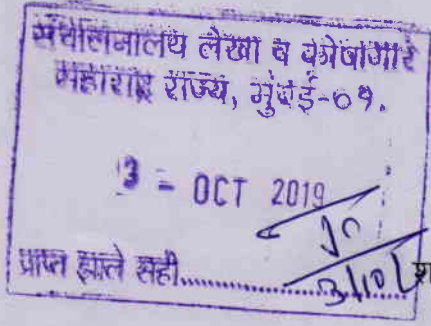 संचालनालय लेखा व कोषागारे
महाराष्ट्र राज्य, मुंबई-०१.
3 - OCT 2019
प्राप्त झाले सही..............
3/10